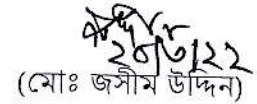 ২০/৩/২২
(মোঃ জসীম উদ্দিন)